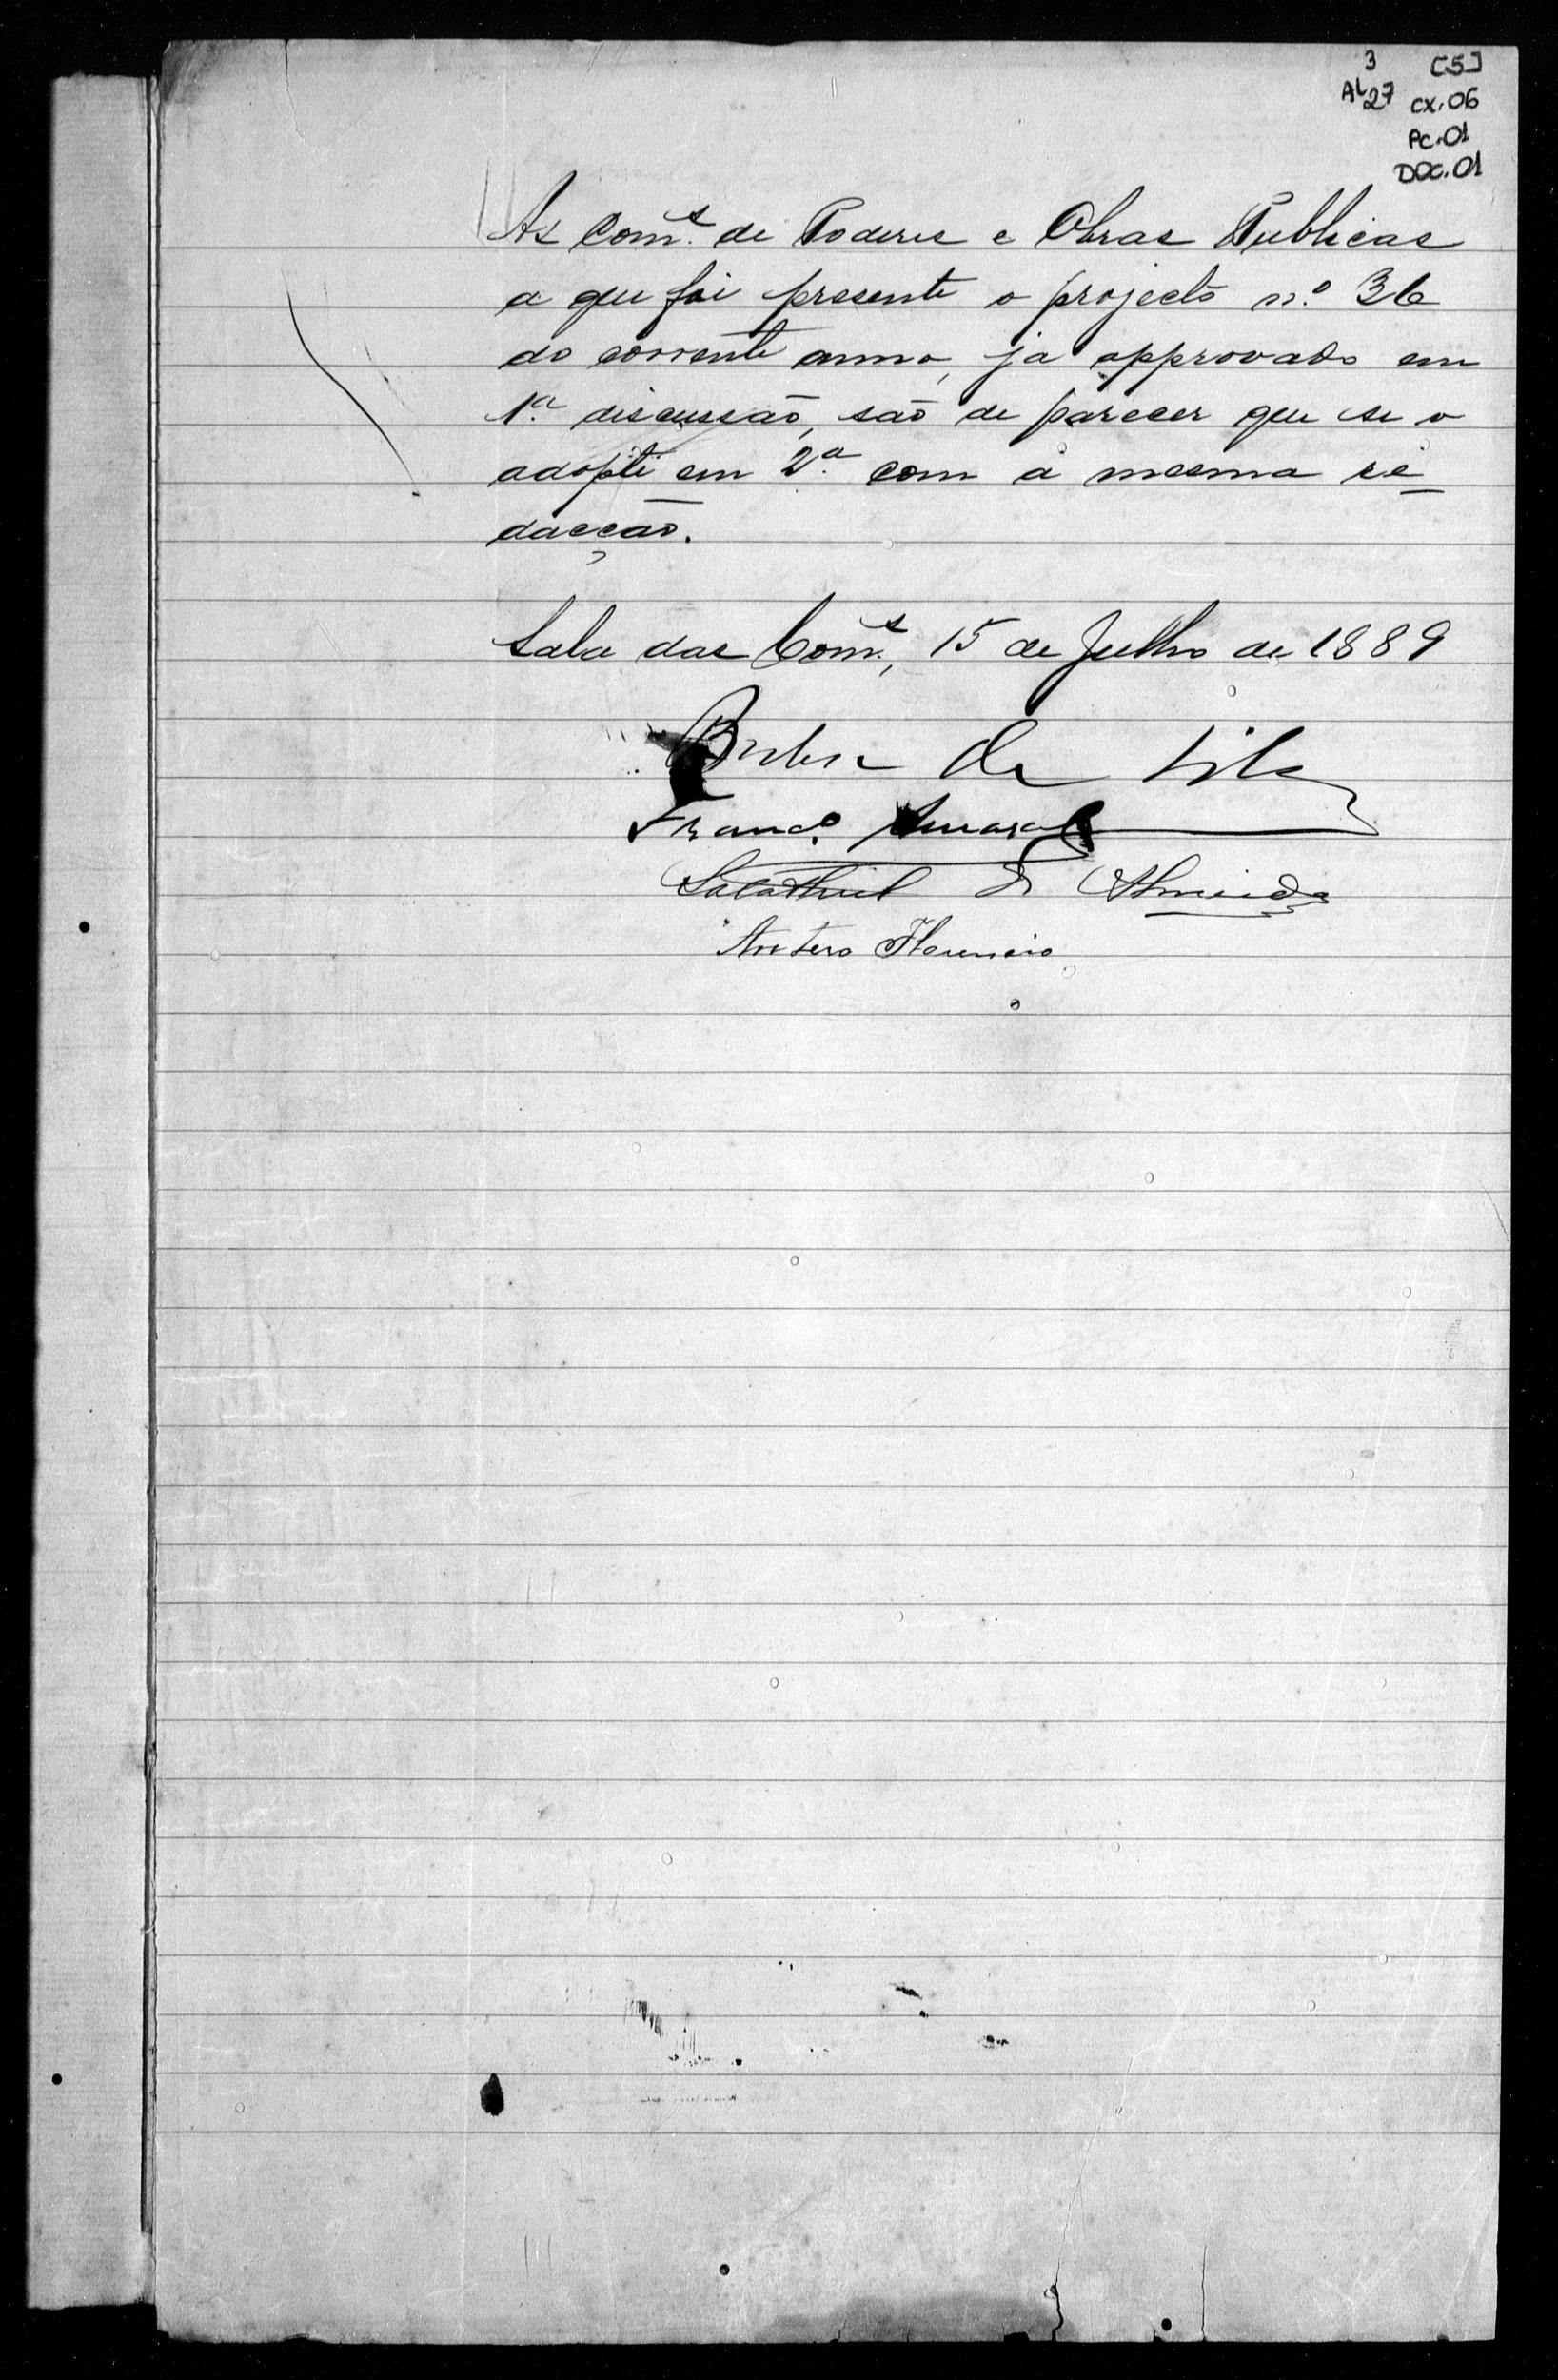 3 [5]
AL27 CX.06
PC.01
DOC.01
As Com.s de Poderes e Obras Publicas
a que foi presente o projecto n.º 36
do corrente anno, já approvado em
1.ª discussão, são de parecer que se o
adopte em 2.ª com a mesma re
dacção.
Sala das Com.s, 15 de Julho de 1889
da Silva
Franc.º Amaral
Salathiel de Almeida
Antero Florencio